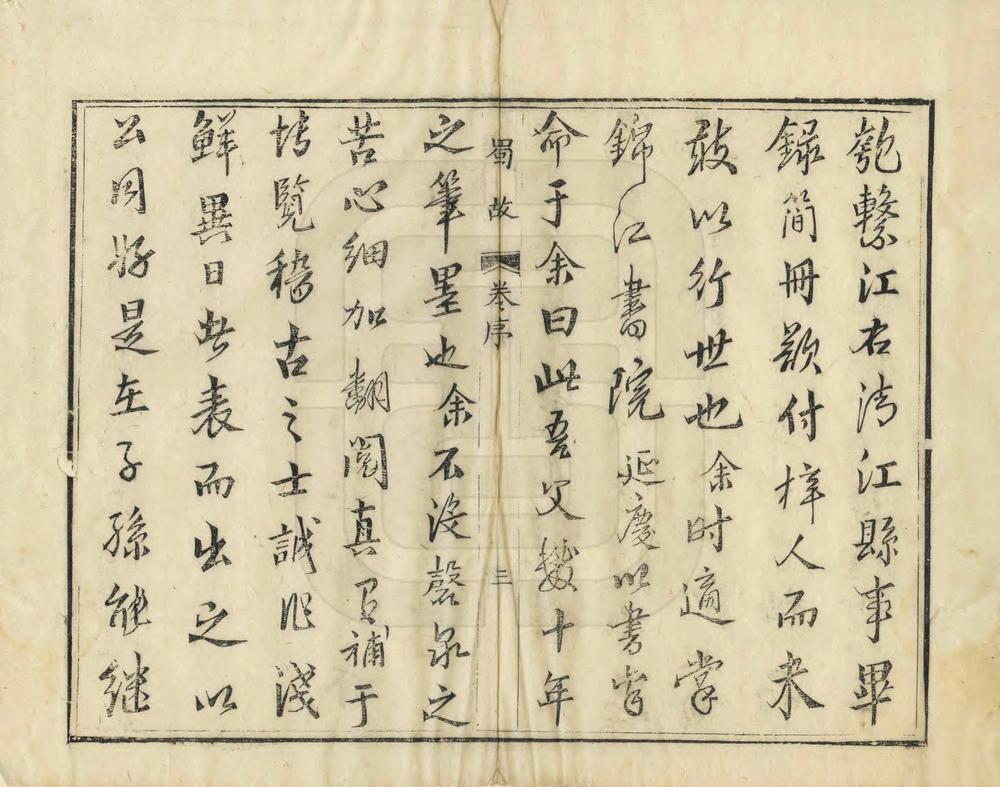 匏繫江右清江縣事畢
錄簡冊欲付梓人而未
敢以行世也余时適掌
錦江書院延慶以書
命于余曰此吾父數十年
蜀故
卷序
三
之筆墨也余不沒磬泉之
苦心細加翻閱真有補于
博覽稽古之士誠非淺
鮮異日者表而出之以
公同好是在子孫能继